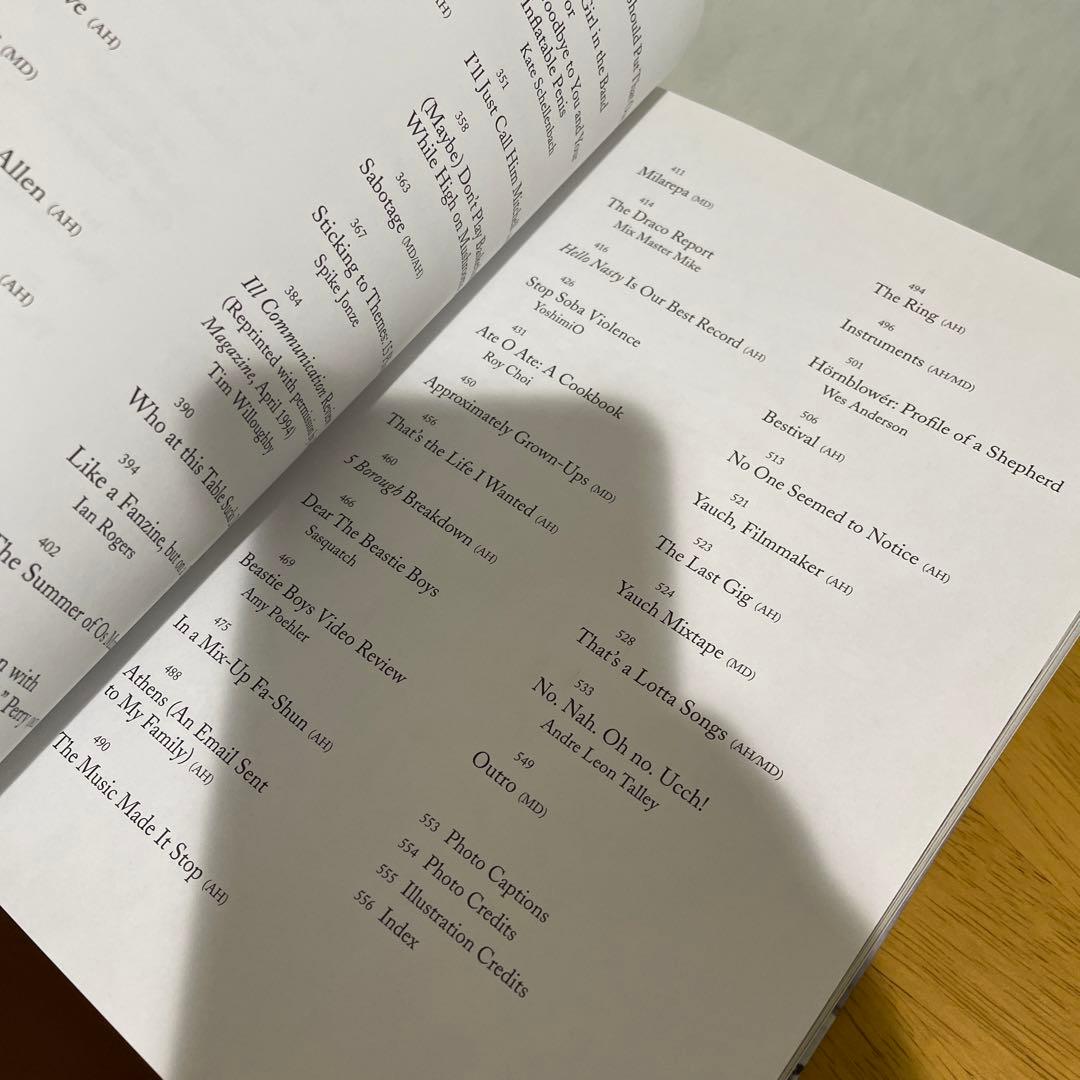 (AH)
(MD)
Allen (AH)
(AH)
Girl in the Band
or
Goodbye to You and Your
Inflatable Penis
Kate Schellenbach
351
I'll Just Call Him
358
(Maybe) Don't Play
While High on
363
Sabotage (MD/AH)
367
Sticking to Themes:
Spike Jonze
384
Ill Communication
(Reprinted with permission
Magazine, April 1994)
Tim Willoughby
390
Who at this Table
394
Like a Fanzine, but
Ian Rogers
402
The Summer of
with
411
Milarepa (MD)
414
The Draco Report
Mix Master Mike
416
Hello Nasty Is Our Best Record (AH)
426
Stop Soba Violence
YoshimiO
431
Ate O Ate: A Cookbook
Roy Choi
450
Approximately Grown-Ups (MD)
456
That's the Life I Wanted (AH)
460
5 Borough Breakdown (AH)
466
Dear The Beastie Boys
Sasquatch
469
Beastie Boys Video Review
Amy Poehler
475
In a Mix-Up Fa-Shun (AH)
488
Athens (An Email Sent
to My Family) (AH)
490
The Music Made It Stop (AH)
494
The Ring (AH)
496
Instruments (AH/MD)
501
Hörnblowér: Profile of a Shepherd
Wes Anderson
506
Bestival (AH)
513
No One Seemed to Notice (AH)
521
Yauch, Filmmaker (AH)
523
The Last Gig (AH)
524
Yauch Mixtape (MD)
528
That's a Lotta Songs (AH/MD)
533
No. Nah. Oh no. Ucch!
Andre Leon Talley
549
Outro (MD)
553 Photo Captions
554 Photo Credits
555 Illustration Credits
556 Index